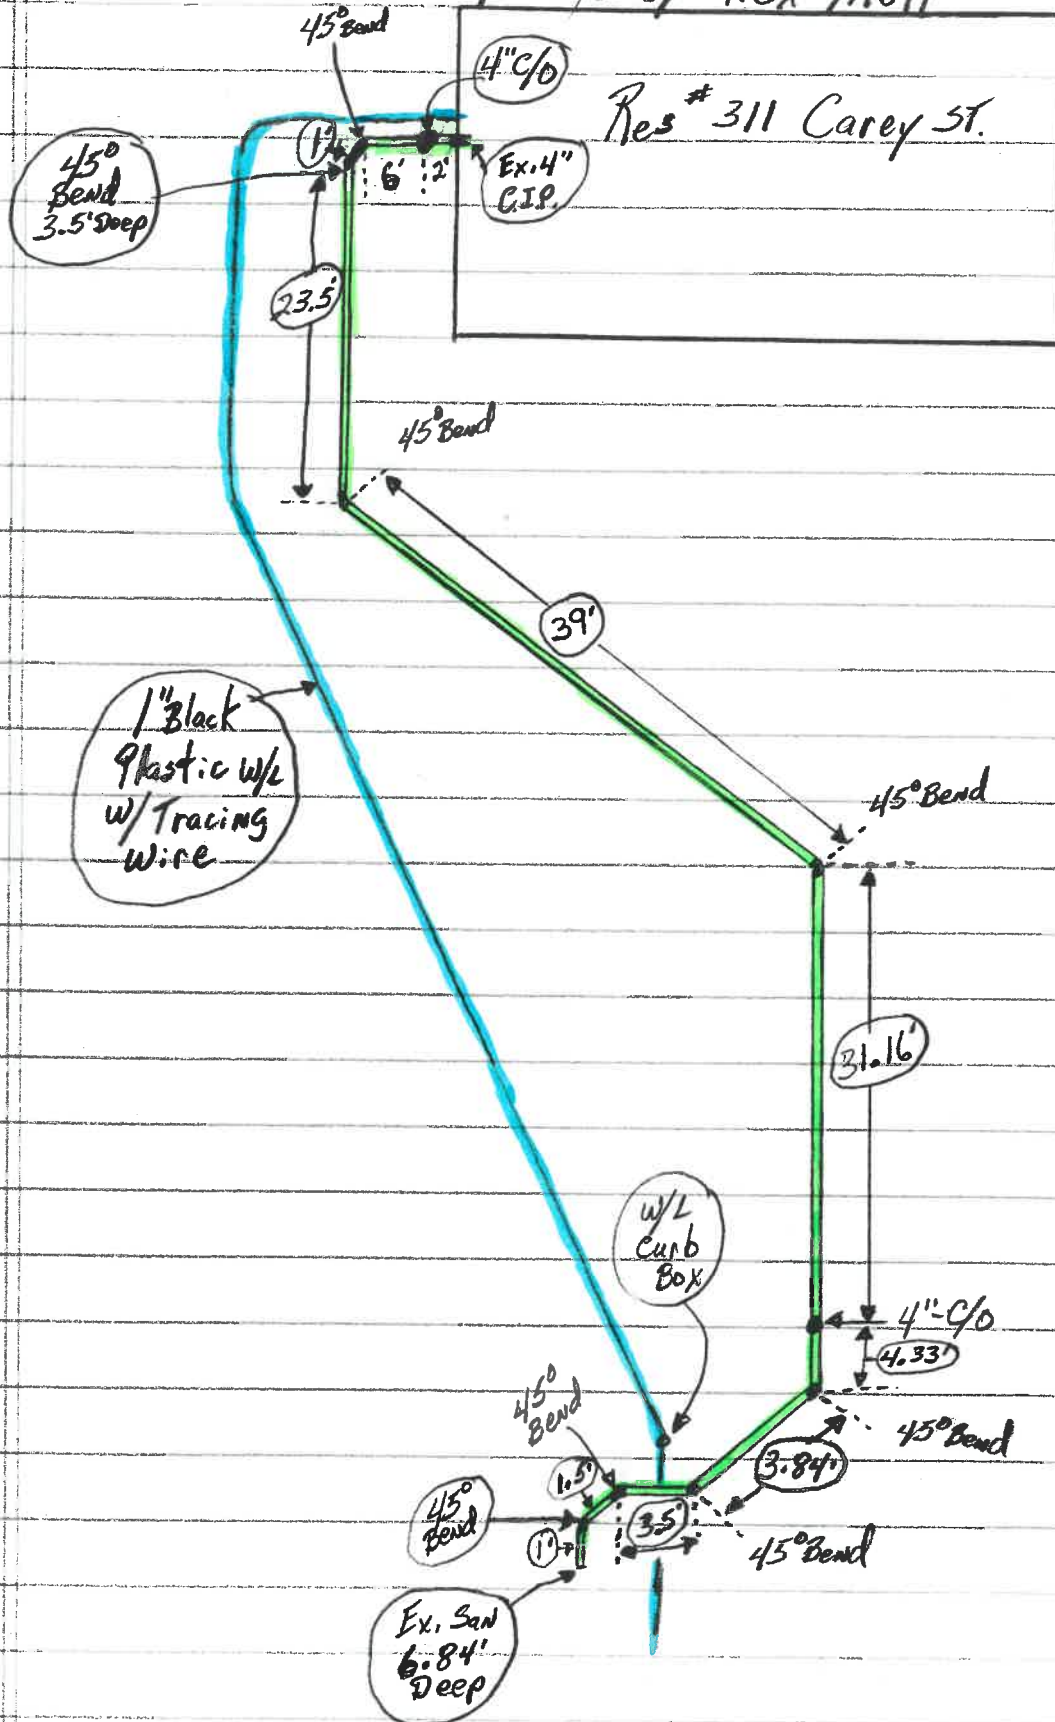 45° Bend
4" C/O
Res # 311 Carey St.
1'
45°
Bend
3.5' Deep
6'
2'
Ex. 4"
C.I.P.
23.5'
45° Bend
39'
1" Black
Plastic W/L
W/ Tracing
Wire
45° Bend
31.16'
W/L
Curb
Box
4"-C/O
4.33'
45°
Bend
45° Bend
3.84'
1.5'
45°
Bend
3.5'
1'
45° Bend
Ex. San
6.84'
Deep